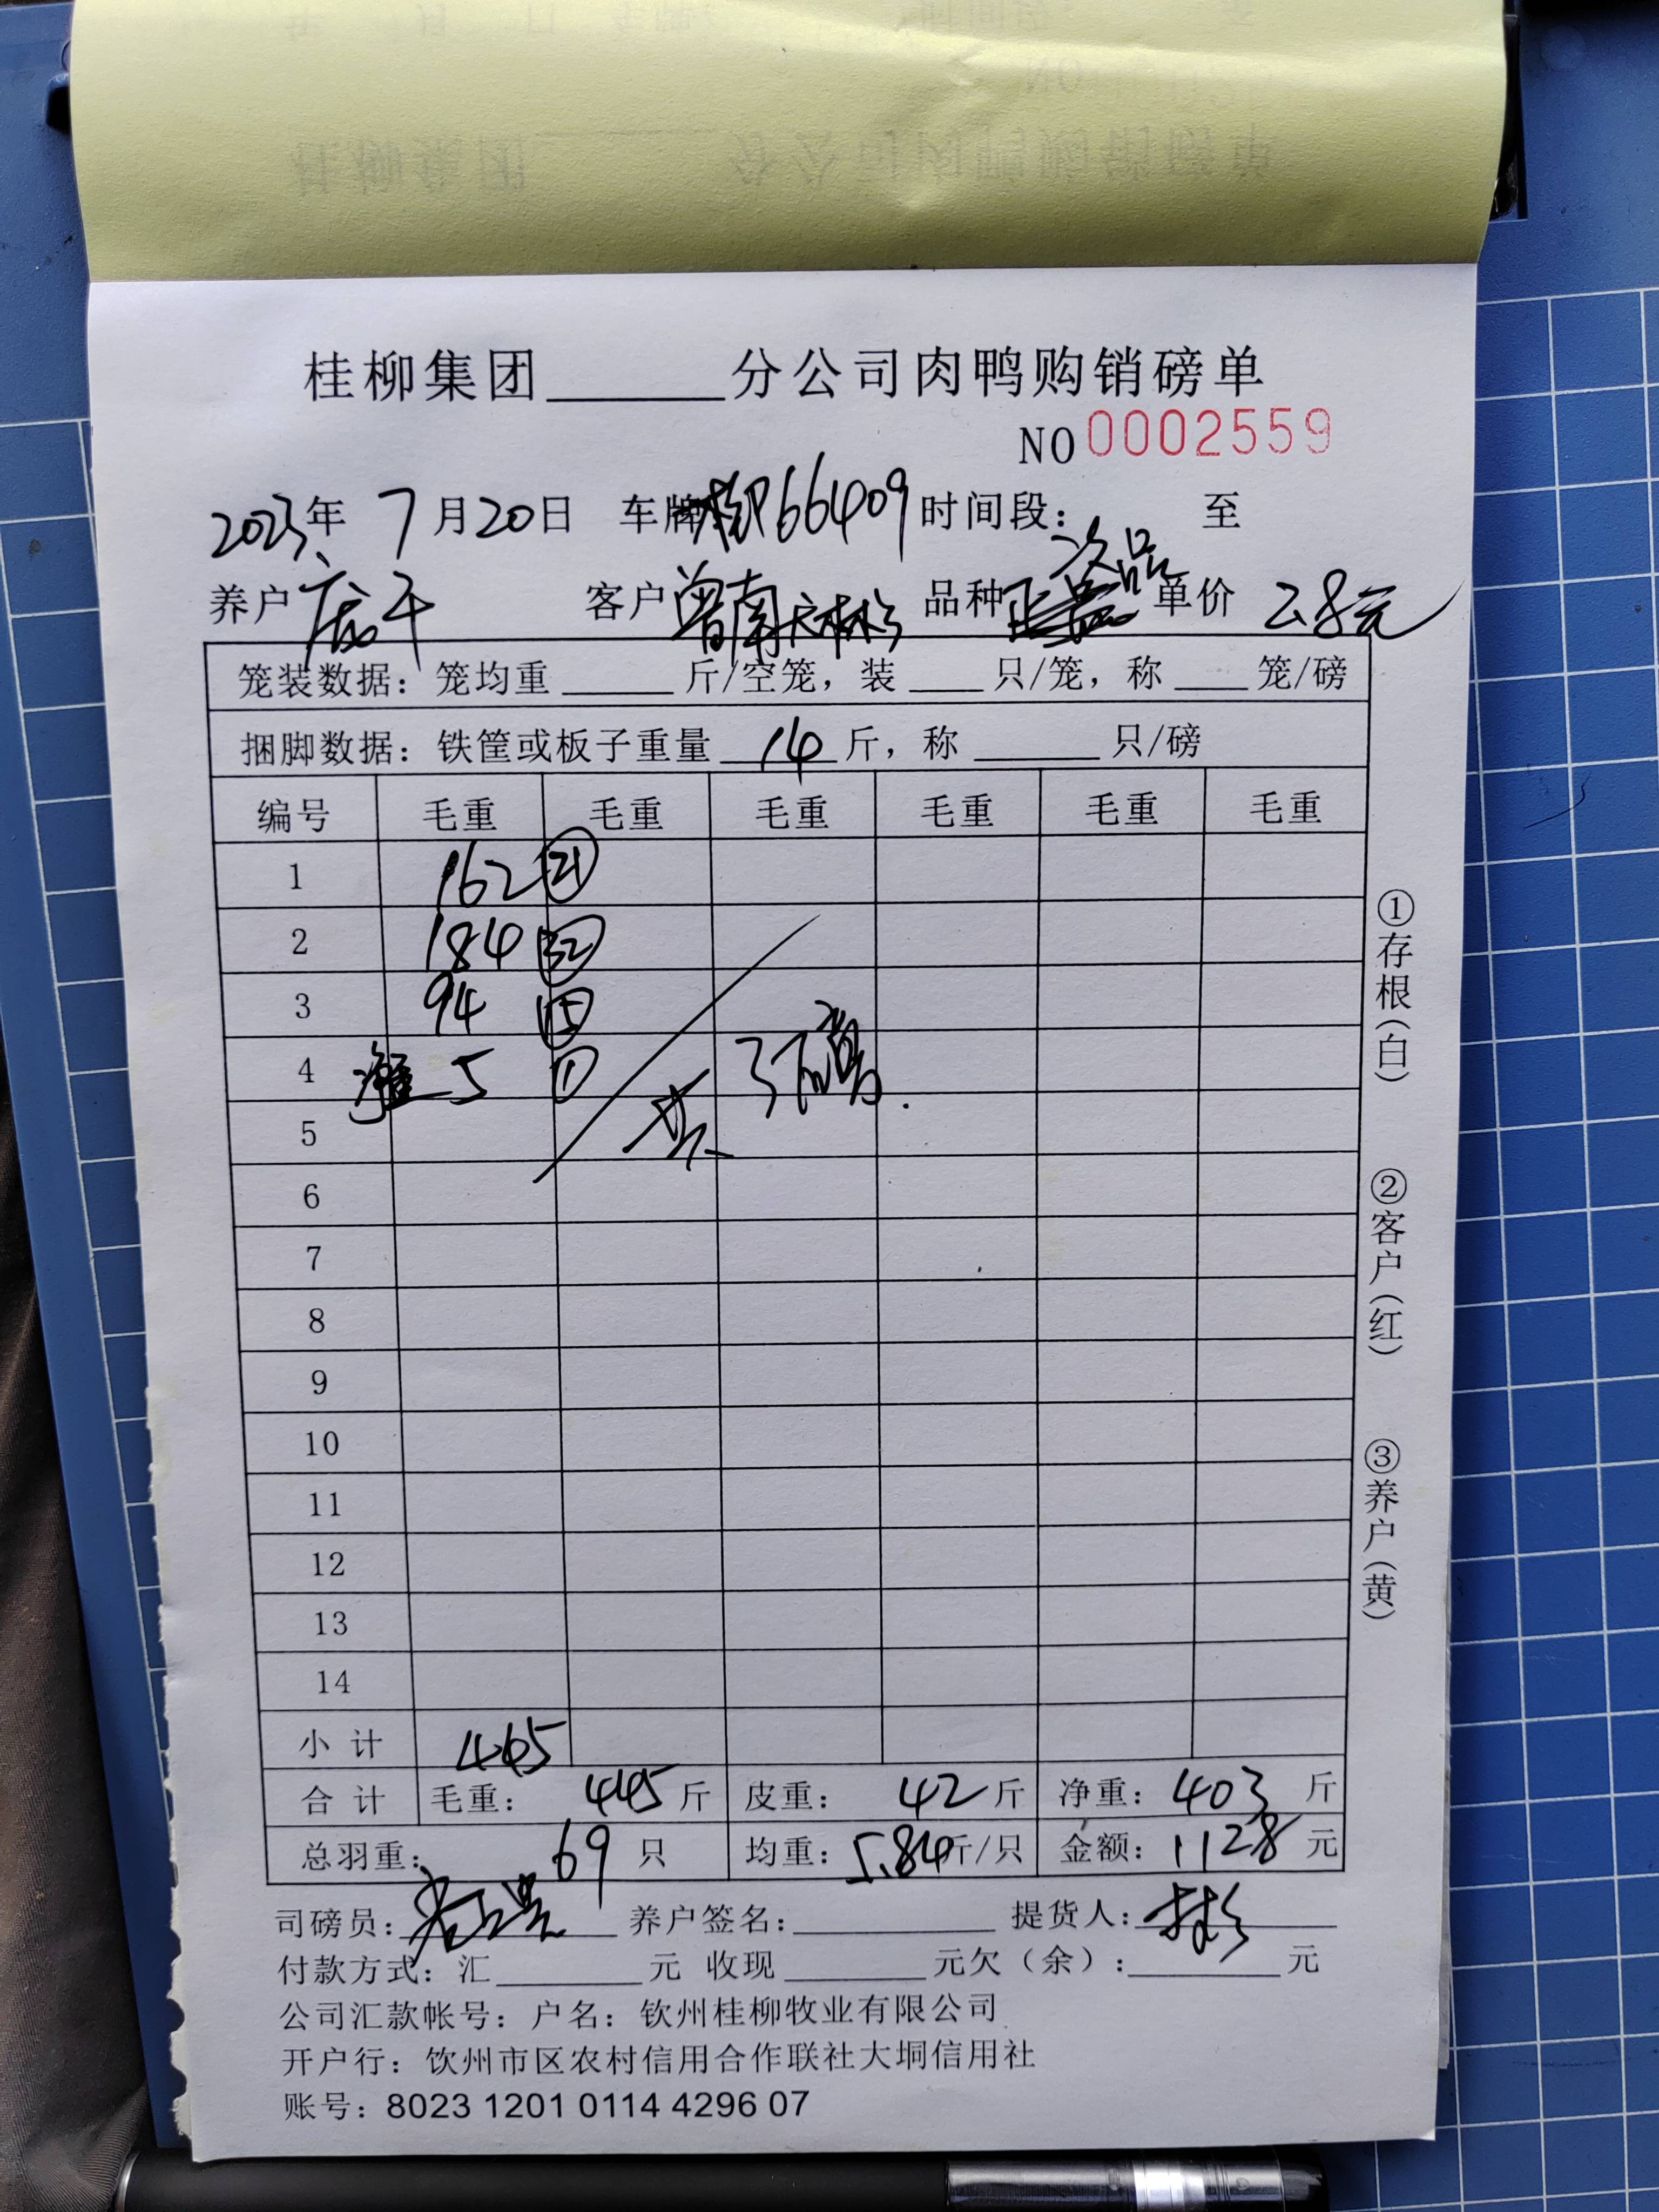 桂柳集团______分公司肉鸭购销磅单
NO 0002559
2023年 7月20日 车牌 66409 时间段: 至
养户 客户 曾南 品种 次品 单价 2.8元
笼装数据: 笼均重______斤/空笼, 装____只/笼, 称____笼/磅
捆脚数据: 铁筐或板子重量 14 斤, 称______只/磅
编号 毛重 毛重 毛重 毛重 毛重 毛重
1 162 21
2 184 32
3 94 15
4 5 ①
共 3磅.
5
6
7
8
9
10
11
12
13
14
小计 445
合计 毛重: 445斤 皮重: 42斤 净重: 403斤
总羽重: 69只 均重: 5.84斤/只 金额: 1128元
司磅员: 养户签名:______ 提货人:
付款方式: 汇______元 收现______元欠(余):______元
公司汇款帐号: 户名: 钦州桂柳牧业有限公司
开户行: 饮州市区农村信用合作联社大垌信用社
账号: 8023 1201 0114 4296 07
①存根(白)
②客户(红)
③养户(黄)